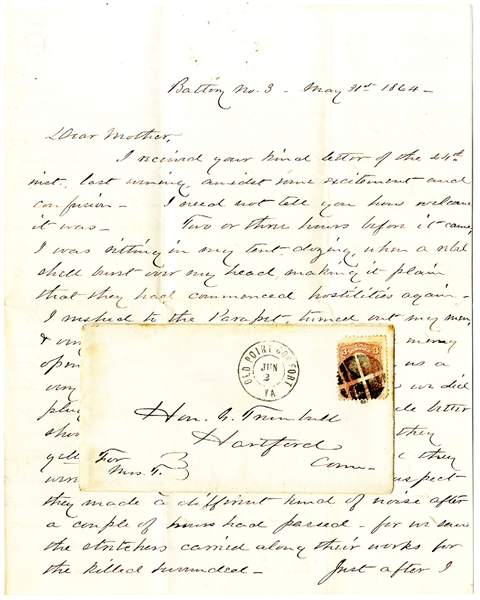 Battery No. 3 - May 31st 1864 -
Dear Mother,
I received your kind letter of the 24th
inst., last evening, amidst some excitement and
confusion - I need not tell you how welcome
it was - Two or three hours before it came,
I was sitting in my tent, dozing, when a rebel
shell burst over my head, making it plain
that they had commenced hostilities again -
I rushed to the Parapet, turned out my men,
&
open
us a
very we did
better
they
they
they made a different kind of noise after
a couple of hours had passed - for we saw
the stretchers carried along their works for
the killed & wounded - Just after I
OLD POINT COMFORT
JUN
3
VA
3
Hon. G. Trumbull
Hartford
Conn -
For
Mrs. T.